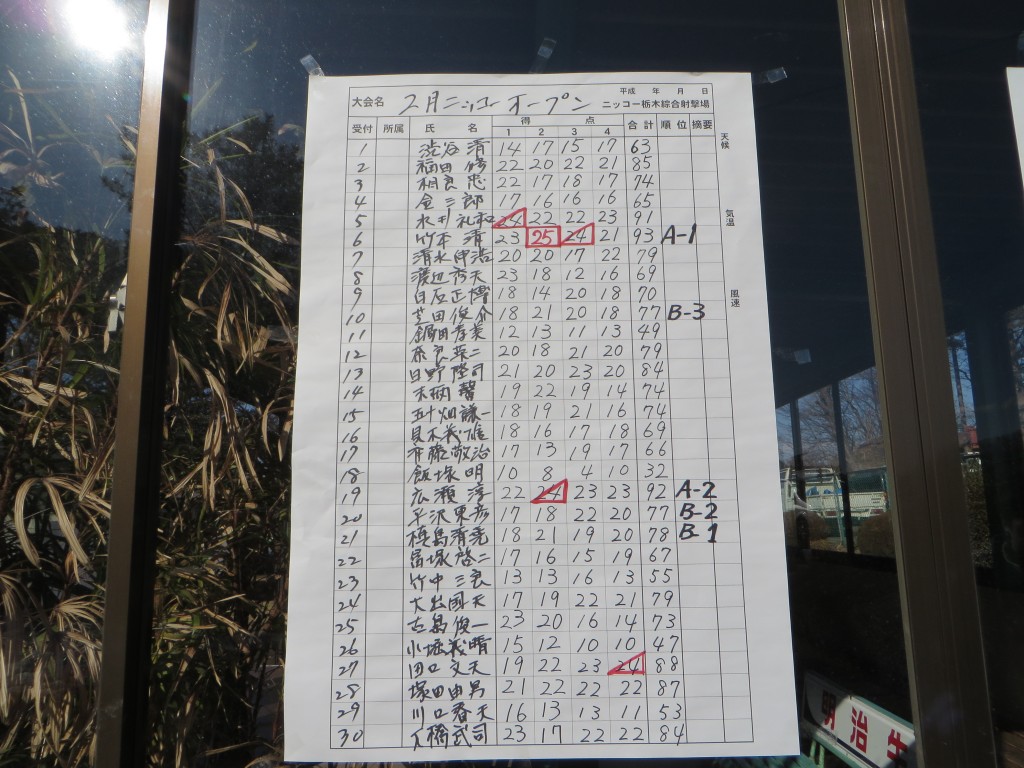 平成 年 月 日
大会名 2月ニッコーオープン ニッコー栃木綜合射撃場
受付 所属 氏 名 得 点 合計 順位 摘要 天候
1 2 3 4
1 渋谷 清 14 17 15 17 63
2 福田 修 22 20 22 21 85
3 相良 忠 22 17 18 17 74
4 金 三郎 17 16 16 16 65
5 水井 礼和 24 22 22 23 91 気温
6 竹本 清 23 25 24 21 93 A-1
7 清水 伸浩 20 20 17 22 79
8 渡辺 秀夫 23 18 12 16 69
9 白石 正博 18 14 20 18 70 風速
10 芝田 俊介 18 21 20 18 77 B-3
11 鍋田 孝美 12 13 11 13 49
12 奈良 栄二 20 18 21 20 79
13 日野 隆司 21 20 23 20 84
14 19 22 19 14 74
15 五十畑 謙一 18 19 21 16 74
16 義雄 18 16 17 18 69
17 斉藤 敬治 17 13 19 17 66
18 飯塚 明 10 8 4 10 32
19 広瀬 淳 22 24 23 23 92 A-2
20 平沢 東彦 17 18 22 20 77 B-2
21 清亮 18 21 19 20 78 B-1
22 冨塚 啓二 17 16 15 19 67
23 竹中 三良 13 13 16 13 55
24 大出 国夫 17 19 22 21 79
25 古島 俊一 23 20 16 14 73
26 小堀 義晴 15 12 10 10 47
27 田口 文夫 19 22 23 24 88
28 塚田 由男 21 22 22 22 87
29 川口 春夫 16 13 13 11 53
30 大橋 武司 23 17 22 22 84
明治